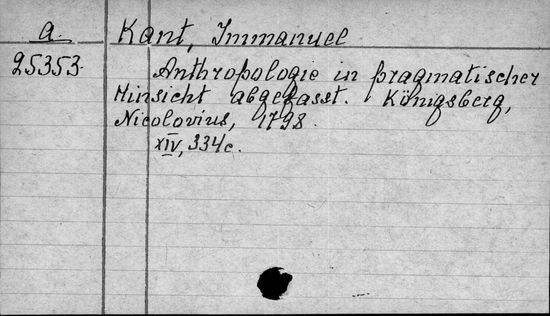 a.
Kant, Immanuel
25353.
Anthropologie in pragmatischer
Hinsicht abgefasst. Königsberg,
Nicolovius, 1798.
XIV, 334 c.